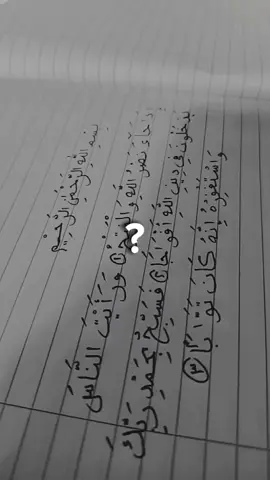 بِسْمِ اللَّهِ الرَّحْمٰنِ الرَّحِيْمِ
إِذَا جَاءَ نَصْرُ اللَّهِ وَالْفَتْحُ ۝ وَرَأَيْتَ النَّاسَ
يَدْخُلُونَ فِي دِينِ اللَّهِ أَفْوَاجًا ۝ فَسَبِّحْ بِحَمْدِ رَبِّكَ
وَاسْتَغْفِرْهُ إِنَّهُ كَانَ تَوَّابًا ۝٣
?